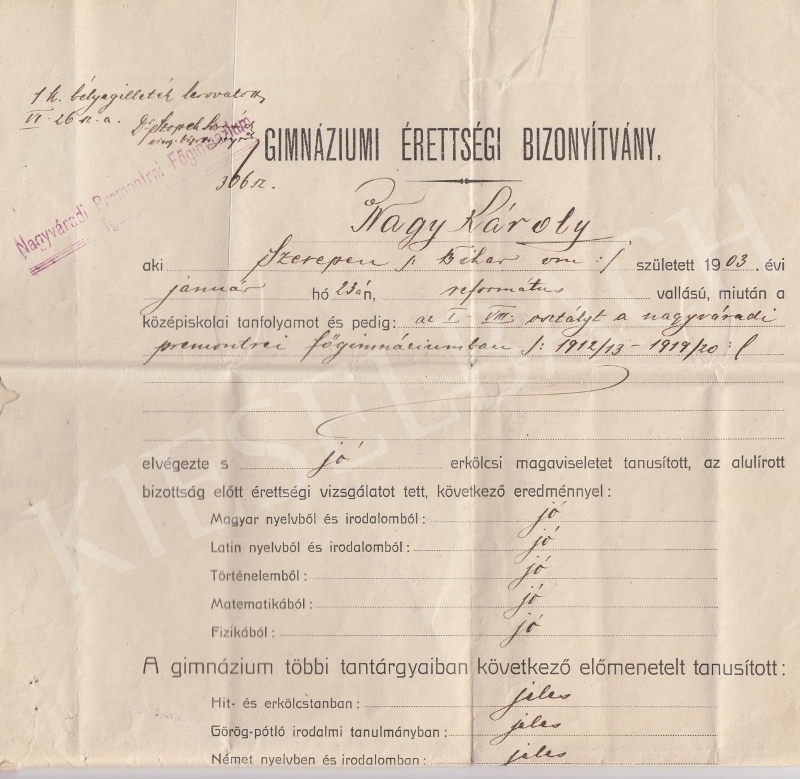 1 k. bélyegilleték lerovatott
VI. 26 sz. a. Dr
Nagyváradi Premontrai Főgimnázium
306 sz.
GIMNÁZIUMI ÉRETTSÉGI BIZONYÍTVÁNY.
Nagy Károly
aki Szerepen /: Bihar vm :/ született 1903. évi
január hó 23án, református vallású, miután a
középiskolai tanfolyamot és pedig: az I–VIII. osztályt a nagyváradi
premontrei főgimnáziumban /: 1912/13 – 1919/20 :/
elvégezte s jó erkölcsi magaviseletet tanusított, az alulírott
bizottság előtt érettségi vizsgálatot tett, következő eredménnyel:
Magyar nyelvből és irodalomból: jó
Latin nyelvből és irodalomból: jó
Történelemből: jó
Matematikából: jó
Fizikából: jó
A gimnázium többi tantárgyaiban következő előmenetelt tanusított:
Hit- és erkölcstanban: jeles
Görög-pótló irodalmi tanulmányban: jeles
Német nyelvben és irodalomban: jeles
KIESELBACH